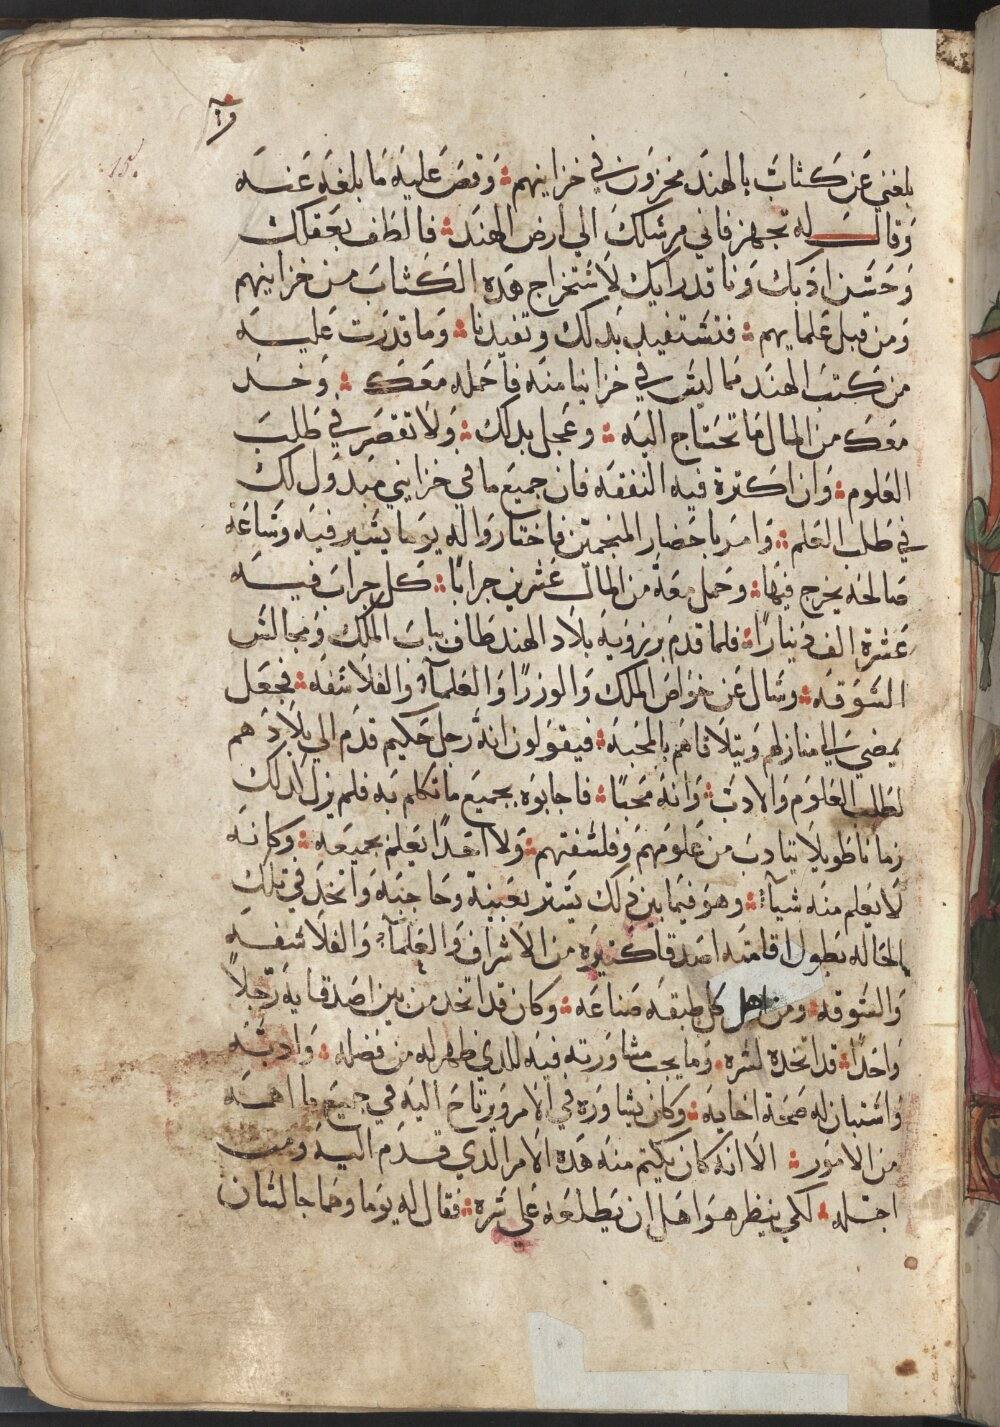 بلغني عن كتاب بالهند مخزون في خزاينهم وقص عليه ما بلغه عنه
وقال له تجهز فاني مرسلك الي ارض الهند فالطف بعقلك
وحسن ادبك ونافد رايك لاستخراج هده الكتاب من خزاينهم
ومن قبل علمايهم فتستفيد بدلك وتفيدنا وما قدرت عليه
من كتب الهند مما ليس في خزاينا منه فاحمله معك وخد
معك من المال ما تحتاج اليه وعجل بدلك ولا تقصر في طلب
العلوم وان اكترة فيه النفقه فان جميع ما في خزايني مبدول لك
في طلب العلم وامر باحضار المنجمين فاختاروا له يوما يسير فيه وساعه
صالحه يخرج فيها وحمل معه من المال عشرين جرابا كل جراب فيه
عشرة الف دينارا فلما قدم برزويه بلاد الهند طاف بباب الملك ومجالس
السوقه وسال عن خواص الملك والوزرا والعلمآ والفلاسفه فجعل
يمضي الي منازلهم ويتلاقاهم بالمحبه فيقولون انه رجل حكيم قدم الي بلادهم
لطلب العلوم والادب وانه محبا فاجابوه بجميع ما تكلم به فلم يزل لدلك
زمانا طويلا يتادب من علومهم وفلسفتهم ولا احدا يعلم بجميعه وكانه
لا يعلم منه شيآ وهو فيما بين دلك يستر بعينه وحاجبه واتخد في تلك
الحاله بطول اقامته اصدقا كتيره من الاشراف والعلمآ والفلاسفه
والسوقه ومن اهل كل طبقه صناعه وكان قد اتخد من بين اصدقايه رجلا
واحدا قد اتخده لسره وما يجب مشاورته فيه للدي ظهر له من فضله وادبه
واستبان له صحة اخايه وكان يشاوره في الامر ويرتاح اليه في جميع ما اهمه
من الامور الا انه كان يكتم منه هده الامر الدي قدم اليه ومن
اجله لكي ينظر هوا اهل ان يطلعه علي سره فقال له يوما وهما جالسان